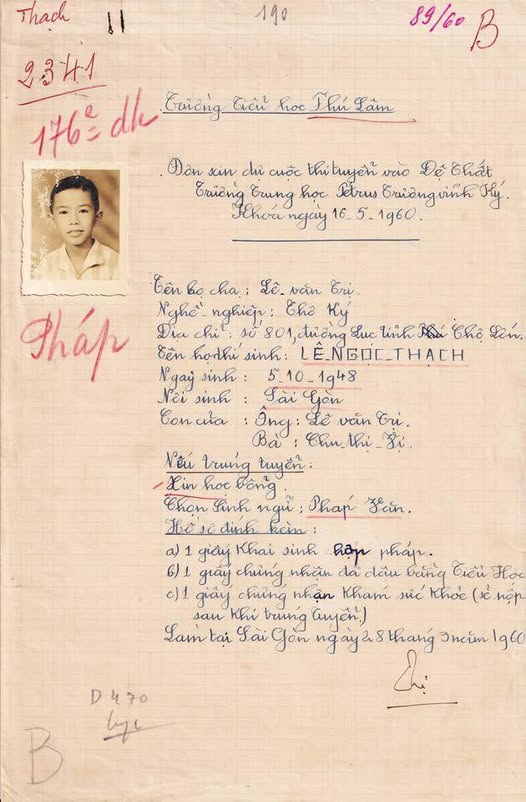 Thạch
11
190
89/60
B
2341
176e đk
Trường Tiểu học Phú Lâm
Đơn xin dự cuộc thi tuyển vào Đệ Thất
Trường Trung học Pétrus Trương vĩnh Ký.
Khóa ngày 16-5-1960.
Pháp
Tên họ cha : Lê văn Trị.
Nghề nghiệp : Thơ Ký
Địa chỉ : số 801, đường Lục tỉnh Chợ Lớn.
Tên họ thí sinh : LÊ NGỌC THẠCH
Ngày sinh : 5-10-1948
Nơi sinh : Sài Gòn
Con của : Ông : Lê văn Trị.
Bà : Chu thị Vị.
Nếu trúng tuyển :
Xin học bổng.
Chọn sinh ngữ : Pháp Văn.
Hồ sơ đính kèm :
a) 1 giấy Khai sinh hợp pháp.
b) 1 giấy chứng nhận đã đậu bằng Tiểu Học
c) 1 giấy chứng nhận Khám sức Khỏe (sẽ nộp
sau khi trúng tuyển.)
Làm tại Sài Gòn ngày 28 tháng 3 năm 1960
D470
B